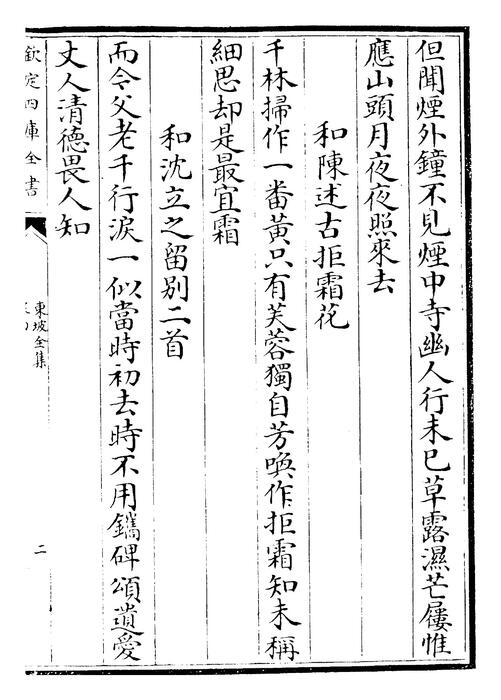 但聞煙外鐘不見煙中寺幽人行未已草露濕芒屨惟
應山頭月夜夜照來去
和陳述古拒霜花
千林掃作一番黃只有芙蓉獨自芳喚作拒霜知未稱
細思却是最宜霜
和沈立之留别二首
而今父老千行淚一似當時初去時不用鐫碑頌遺愛
丈人清德畏人知
欽定四庫全書
東坡全集
二